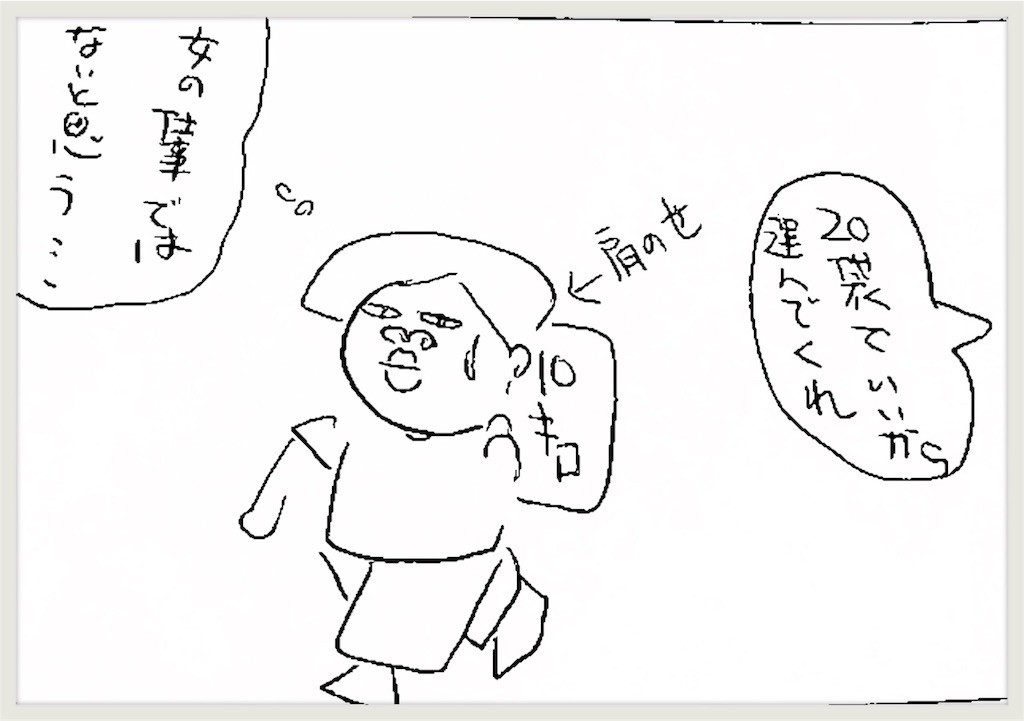 20くていいから
運んでくれ
肩のせ
10
キロ
女の仕事では
ないと思う…